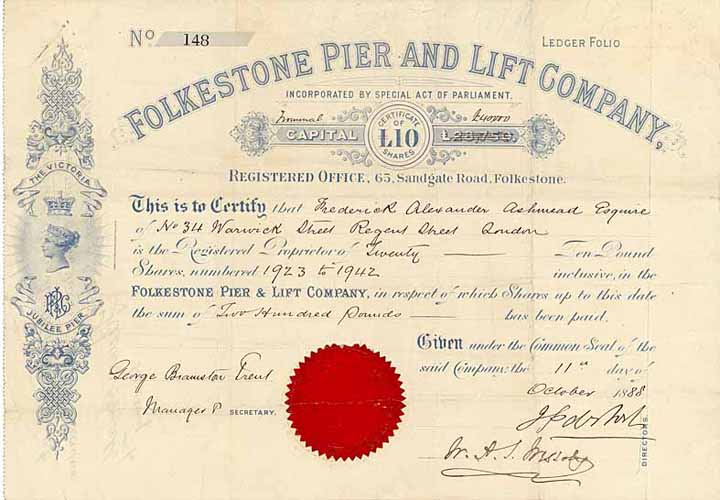 No 148
LEDGER FOLIO
FOLKESTONE PIER AND LIFT COMPANY,
INCORPORATED BY SPECIAL ACT OF PARLIAMENT.
Nominal CERTIFICATE £40000
CAPITAL OF £10 £28,750
SHARES
REGISTERED OFFICE, 65, Sandgate Road, Folkestone.
THE VICTORIA
JUBILEE PIER
This is to Certify that Frederick Alexander Ashmead Esquire
of No 34 Warwick Street Regent Street London
is the Registered Proprietor of Twenty Ten Pound
Shares, numbered 1923 to 1942 inclusive, in the
FOLKESTONE PIER & LIFT COMPANY, in respect of which Shares up to this date
the sum of Two Hundred Pounds has been paid.
Given under the Common Seal of the
said Company, the 11th day of
October 1888
George Bramston Trent
Manager & SECRETARY.
W. A. S.
DIRECTORS.